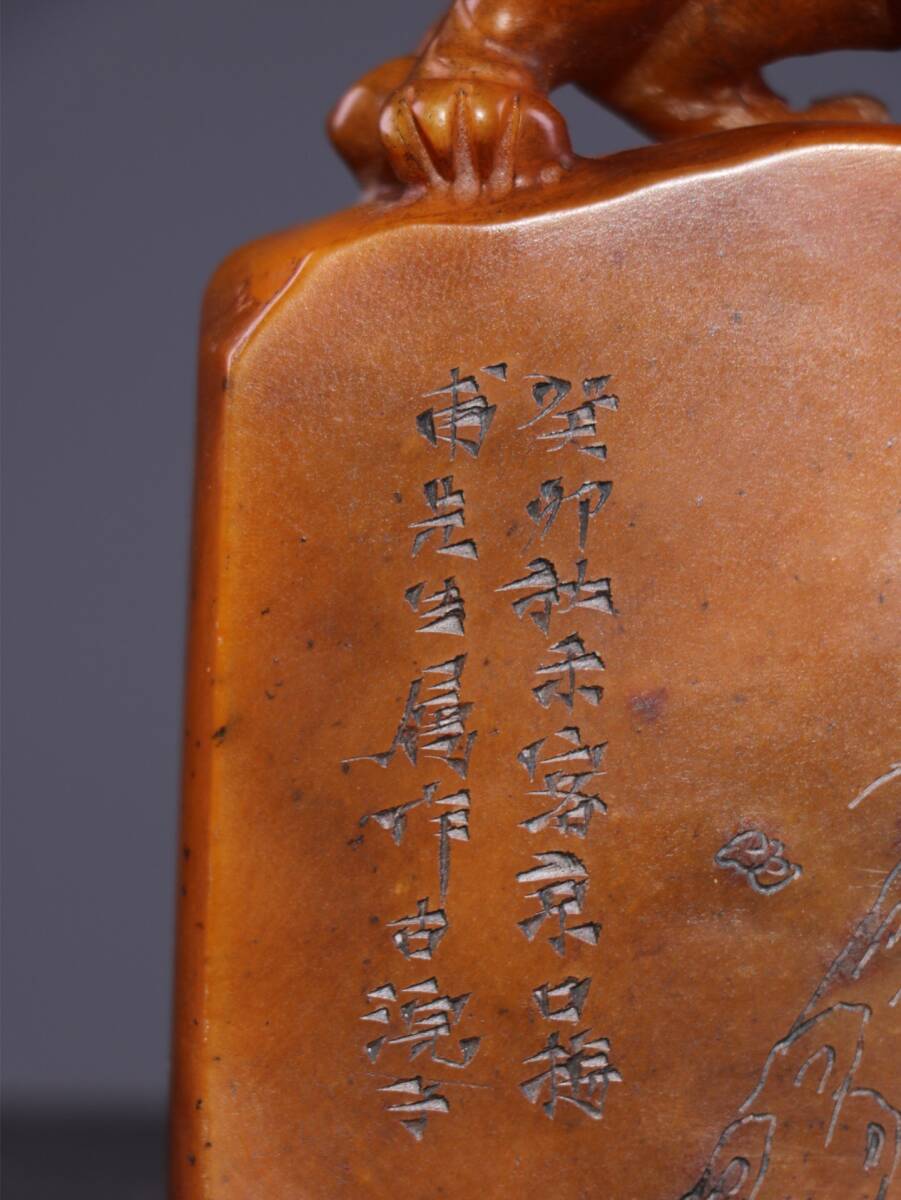 癸卯秋禾客京口梅
甫先生属作古浣子